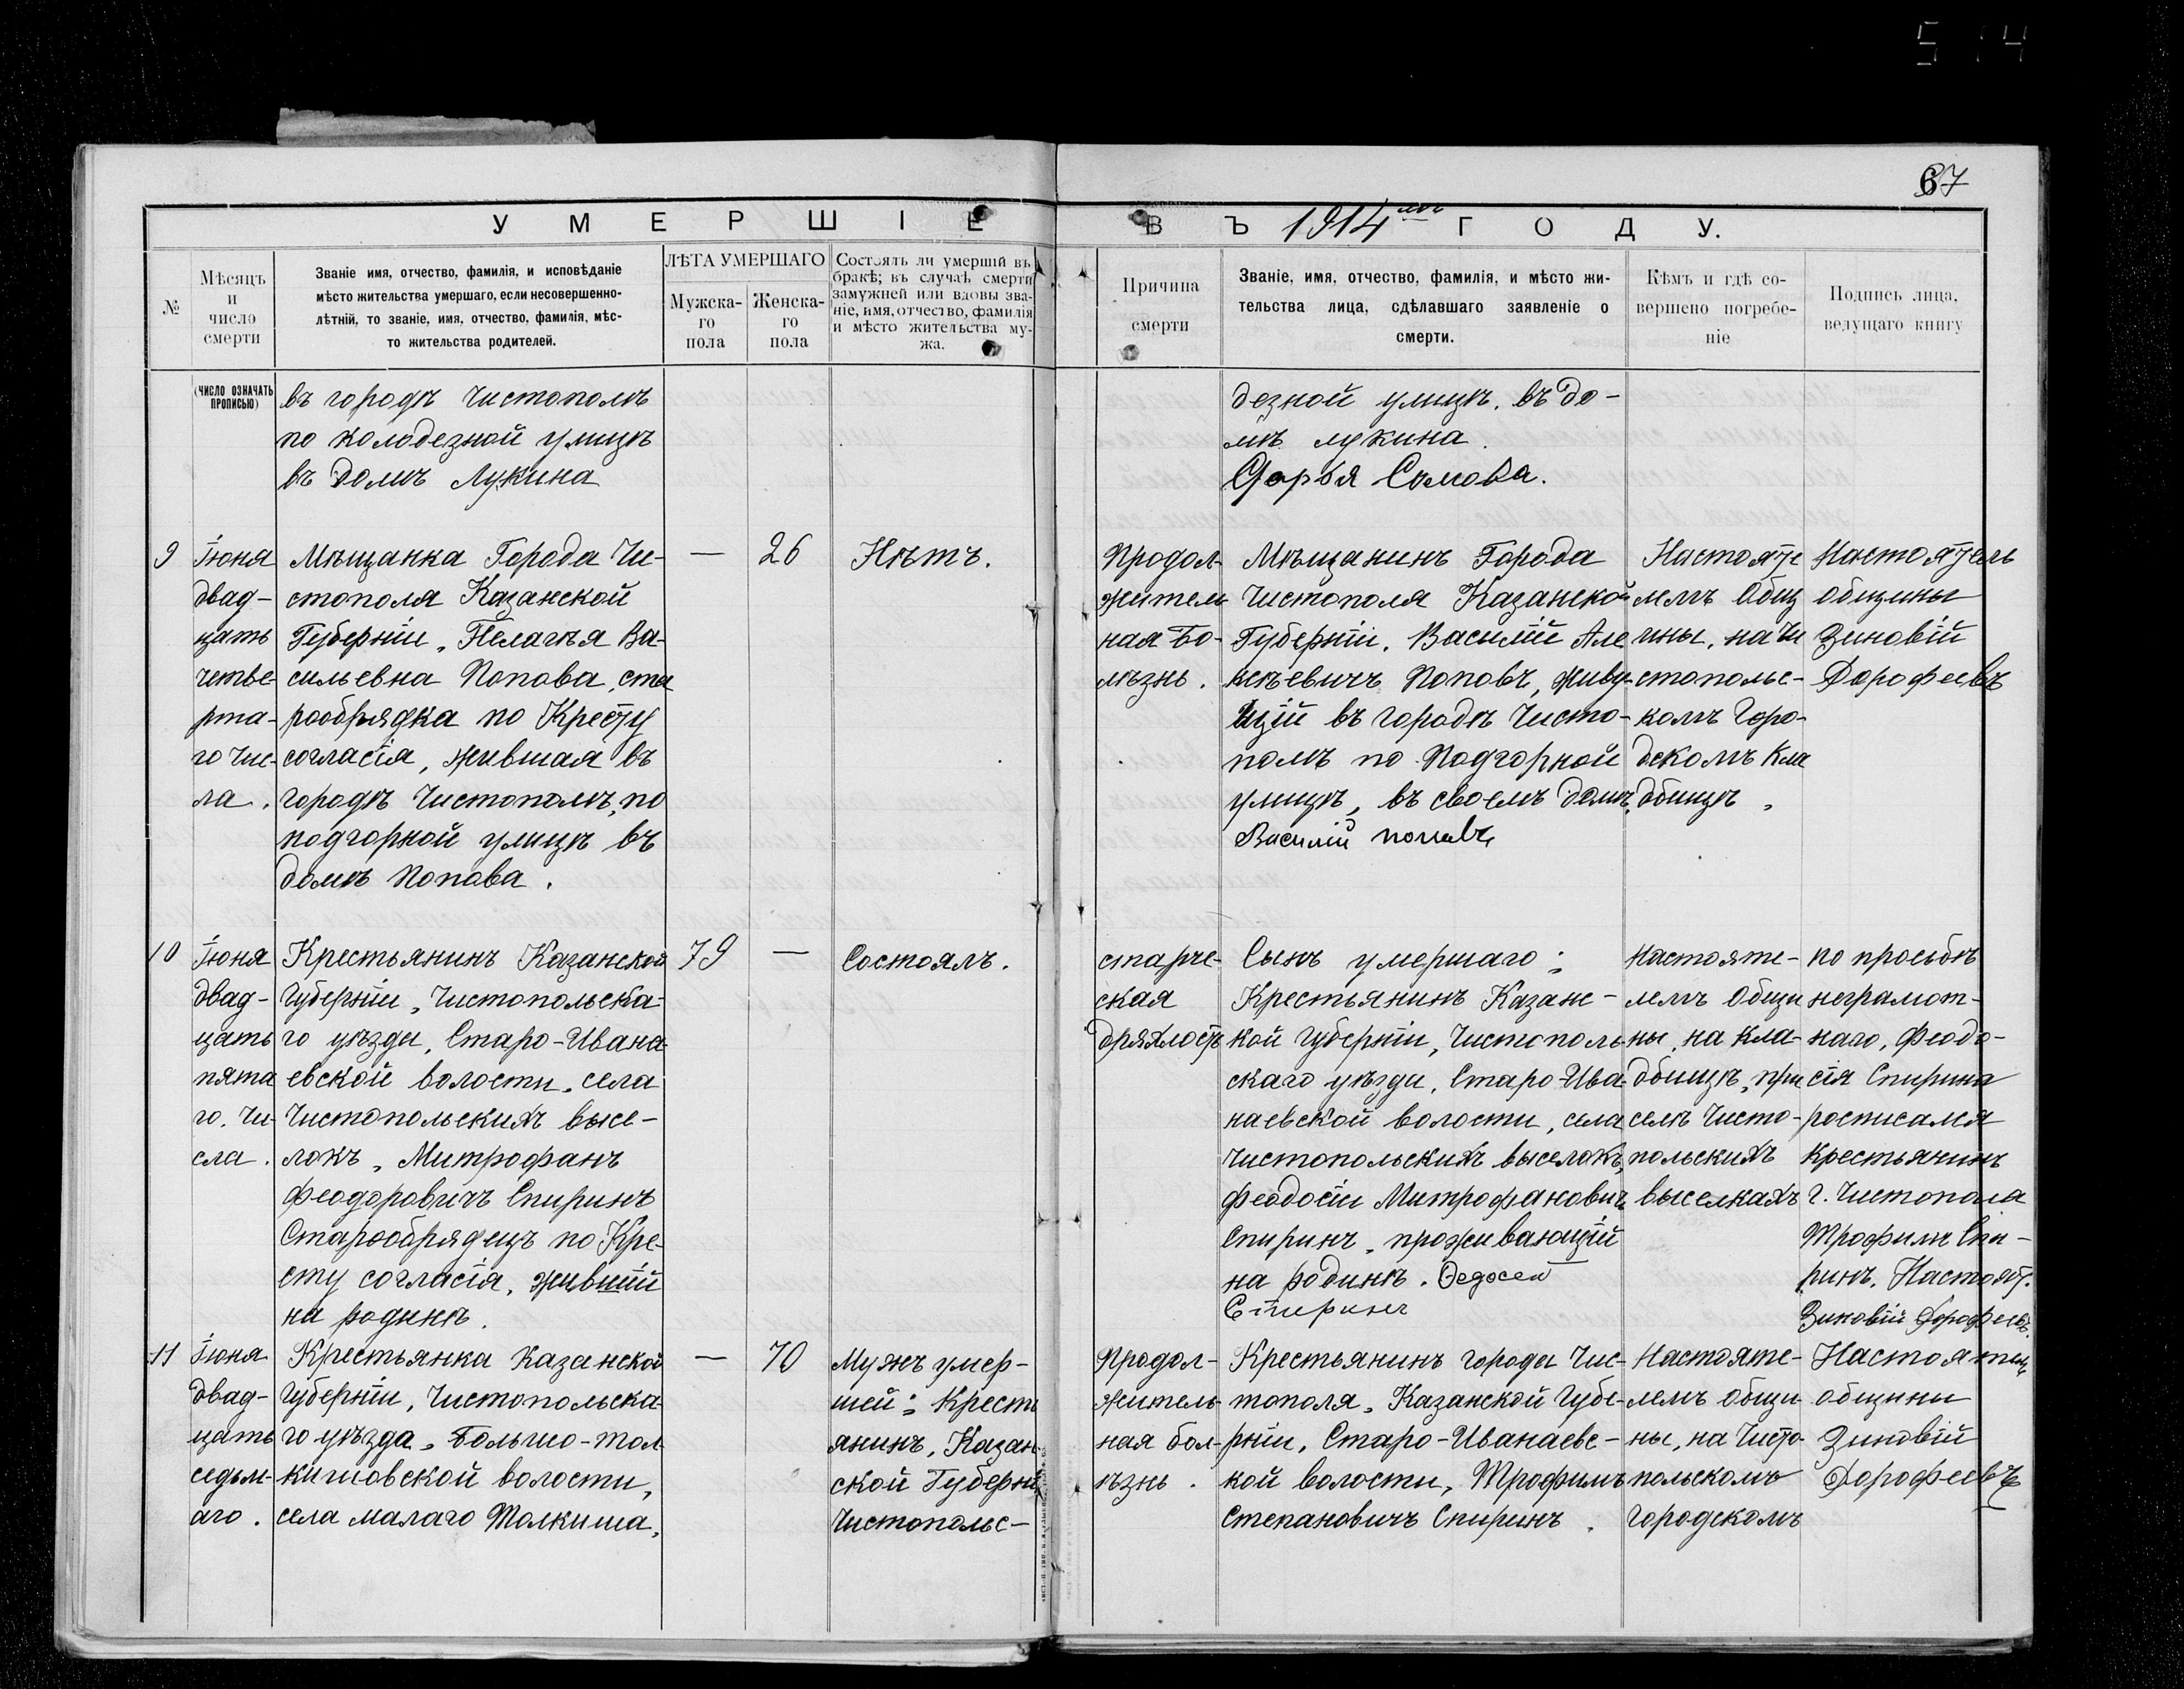 514
67
УМЕРШІЕ
ВЪ 1914 мъ ГОДУ.
№
Мѣсяцъ
и
число
смерти
Званіе имя, отчество, фамилія, и исповѣданіе
мѣсто жительства умершаго, если несовершенно-
лѣтній, то званіе, имя, отчество, фамилія, мѣс-
то жительства родителей.
ЛѢТА УМЕРШАГО
Мужска-
го
пола
Женска-
го
пола
Состоялъ ли умершій въ
бракѣ; въ случаѣ смерти
замужней или вдовы зва-
ніе, имя, отчество, фамилія
и мѣсто жительства му-
жа.
Причина
смерти
Званіе, имя, отчество, фамилія, и мѣсто жи-
тельства лица, сдѣлавшаго заявленіе о
смерти.
Кѣмъ и гдѣ со-
вершено погребе-
ніе
Подпись лица,
ведущаго книгу
(ЧИСЛО ОЗНАЧАТЬ
ПРОПИСЬЮ)
въ городѣ Чистополѣ
по колодезной улицѣ
въ домѣ Лукина
дезной улицѣ. въ до-
мѣ лукина.
Дарья Сомова.
9
Іюня
двад-
цать
четве-
рта-
го чис-
ла.
Мѣщанка Города Чи-
стополя Казанской
Губерніи, Пелагѣя Ва-
сильевна Попова, ста
рообрядка по Кресту
согласія, жившая въ
городѣ Чистополѣ, по
подгорной улицѣ въ
домѣ Попова.
—
26
Нѣтъ.
Продол-
житель
ная Бо-
лѣзнь.
Мѣщанинъ Города
Чистополя Казанской
Губерніи. Василій Але
ксѣевичъ Поповъ, живу-
щій въ городѣ Чисто-
полѣ по Подгорной
улицѣ, въ своемъ домѣ.
Василій поповъ
Настояте
лемъ Общ
ины, на Чи
стопольс-
комъ Горо-
дскомъ Кла
дбищѣ,
Настоятель
общины
Зиновій
Дорофеевъ
10
Іюня
двад-
цать
пята
го. чи-
сла.
Крестьянинъ Казанской
Губерніи, Чистопольска-
го уѣзда, Старо-Ивана
евской волости, села
Чистопольскихъ высе-
локъ, Митрофанъ
Феодоровичъ Спиринъ
Старообрядецъ по Кре-
сту согласія, жившій
на родинѣ.
79
—
Состоялъ.
старче-
ская
дряхлость
Сынъ умершаго:
Крестьянинъ Казанс-
кой Губерніи, Чистополь
скаго уѣзда, Старо-Ива-
наевской волости, села
Чистопольскихъ выселокъ,
Феодосіи Митрофановичъ
Спиринъ, проживающій
на родинѣ. Федосей
Спиринъ
Настояте-
лемъ Общи
ны, на кла-
дбищѣ, при
селѣ Чисто-
польскихъ
выселкахъ
по просьбѣ
неграмот-
наго, Феодо-
сія Спирина
росписался
Крестьянинъ
г. Чистополя
Трофимъ Спи-
ринъ. Настоят.
Зиновій Дорофеевъ.
11
Іюня
двад-
цать
седьм-
аго.
Крестьянка Казанской
Губерніи, Чистопольска-
го уѣзда, Больше-тол
кишовской волости,
села малаго Толкиша,
—
70
Мужъ умер-
шей: Кресть
янинъ, Казан-
ской Губерніи
Чистопольс-
Продол-
житель-
ная бол-
ѣзнь.
Крестьянинъ города Чис-
тополя, Казанской Губе-
рніи, Старо-Иванаевс-
кой волости, Трофимъ
Степановичъ Спиринъ.
Настояте-
лемъ общи-
ны, на Чисто-
польскомъ
Городскомъ
Настоятель
общины
Зиновій
Дорофеевъ